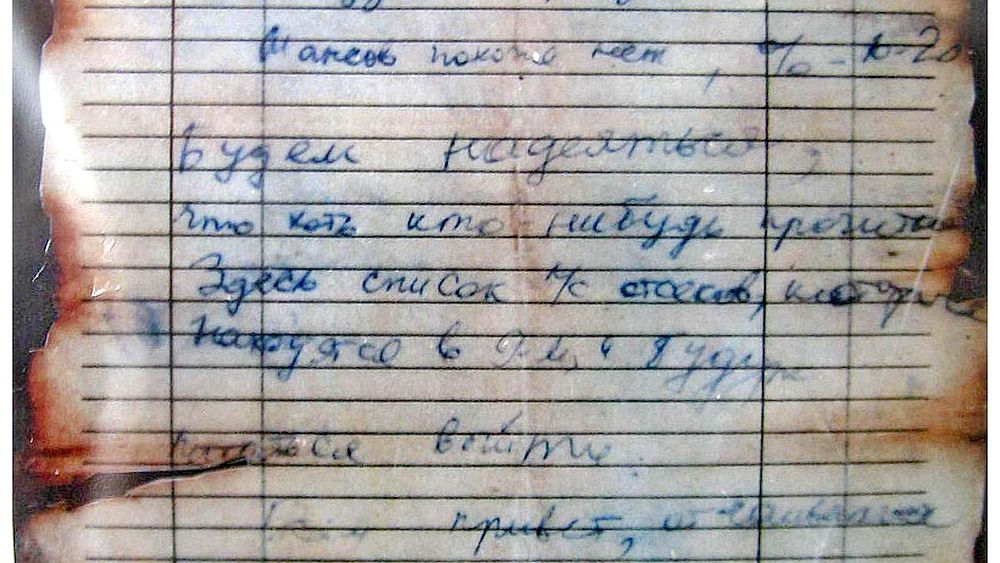 Шансов похоже нет, % – 10-20
Будем надеяться,
что хоть кто-нибудь прочитает
Здесь список л/с отсеков, которые
находятся в 9-м и будут
пытаться выйти.
Всем привет, отчаиваться